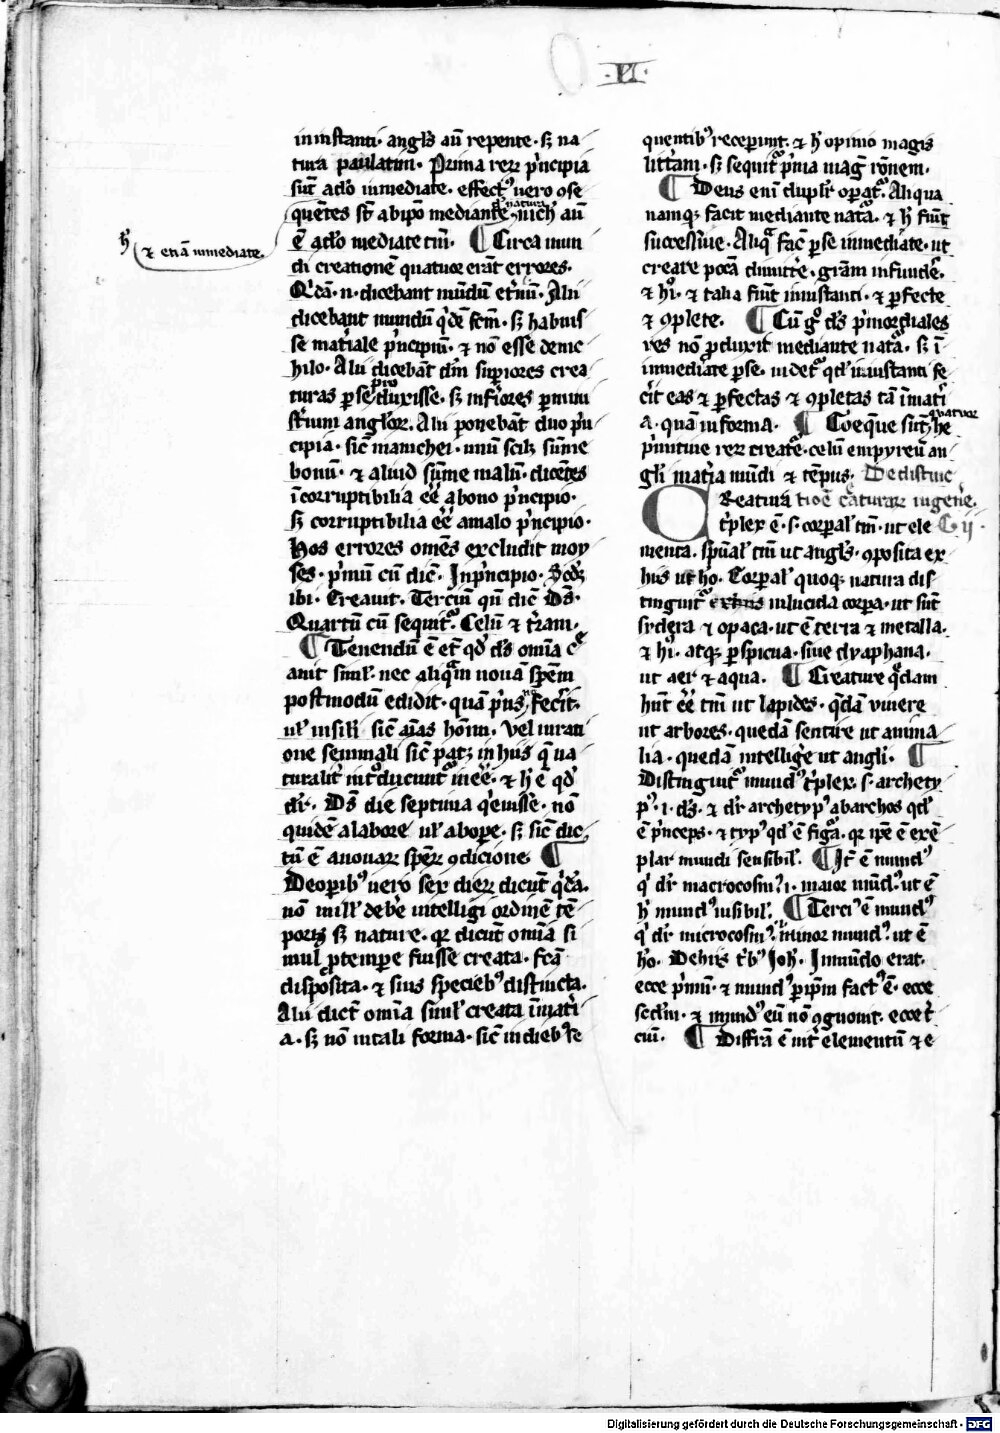 ·VI·
in instanti· angl's aū repente· sꝫ na
tura paulatim· Prima reꝝ p'ncipia
sūt a dō īmediate· effectꝰ uero ɔse
quētes sūt ab ip̄o mediante natura
⁊ etiā īmediate
ē a dō mediate tm̄· ¶ Circa mun
di creationē quatuor erāt errores·
Qdā· n· dicebant mūdū et'nū· Alii
dicebant mundū q'dē fcm̄· sꝫ habuis
se mat'iale p'ncipiū· ⁊ nō esse de nic
hilo· Alii dicebāt dm̄ supiores crea
turas p se produxisse· sꝫ inf'iores p mini
st'ium angloꝝ· Alii ponebāt duo p'n
cipia· sic̄ manichei· unū scilꝫ sūme
bonū· ⁊ aliud sūme malū· dicētes
īcorruptibilia eē̄ a bono p'ncipio·
sꝫ corruptibilia eē̄ a malo p'ncipio·
Hos errores om̄es excludit moy
ses· p'mū cū dic̄· In p'ncipio· Scdꝫ
ibi· Creauit· Terciū qn̄ dic̄ Ds̄·
Quartū cū sequit᷑· Celū ⁊ t'ram·
¶ Tenendū ē et̄ qd' ds̄ om̄ia c̄
auit simł· nec aliq̄m nouā spēm
postmodū edidit· quā p'us nō fecit·
uł in sili sic̄ aīas hōm̄· vel in rati
one seminali sic̄ patꝫ in hiis q̄ na
turalit' int'ducunt᷑ in eē̄· ⁊ h' ē qd'
dr̄· Ds̄ die septima q'euisse· nō
quidē a labore uł ab ope· sꝫ sic̄ dic
tū ē a nouaꝝ spēꝝ ɔdicione ¶
De opibꝰ uero sex dieꝝ dicūt q'dā·
nō ill' deb'e intelligi ordinē tē
poris sꝫ nature· qꝛ dicūt om̄ia si
mul p tempe fuisse creata· fcā
disposita· ⁊ suis speciebꝰ distincta·
Alii dic̄t om̄ia simł creata ī mat'i
a· sꝫ nō in tali forma· sic̄ in diebꝰ se
quentibꝰ recepunt· ⁊ h' opinio magis
litt'am· sꝫ sequit᷑ p'ma mag' rōnem·
¶ Deus eni dupłr opat᷑· Aliqua
namqꝫ facit mediante natā· ⁊ h' fiūt
successiue· Aliq̄ fac̄ p se īmediate· ut
creare pocā dimitt'e· grām infund'e·
⁊ hi· ⁊ talia fiūt in instanti· ⁊ pfecte
⁊ ɔplete· ¶ Cū g° ds̄ p'mordiales
res nō pduxit mediante natā· sꝫ ī
īmediate p se· uidet᷑ qd' in instanti fe
c'it eas ⁊ pfectas ⁊ ɔpletas tā ī mat'i
a· quā in forma· ¶ Coeque sūt quatuor he
p'mitiue reꝝ create· celū empyreū an
gl'i mat'ia mūdi ⁊ tēpus· De distinc
Creatura tiōe c̄aturaꝝ in gen'e·
t'plex ē· s· corpal' tm̄· ut ele C ij·
menta· spūal' tm̄ ut angl's· ɔposita ex
hiis ut hō· Corpal' quoqꝫ natura dis
tinguit᷑ in lucida corpa· ut sūt
sydera ⁊ opaca· ut ē terra ⁊ metalla·
⁊ hi· atqꝫ pspicua· siue dyaphana·
ut aer ⁊ aqua· ¶ Creature q̄dam
hn̄t eē̄ tm̄ ut lapides· q̄dā viuere
ut arbores· quedā sentire ut anima
lia· quedā intellig'e ut angli· ¶
Distinguit᷑ mundꝰ t'plex· s· archety
pꝰ· i· ds̄· ⁊ dr̄ archetypꝰ ab archos qd'
ē p'nceps· ⁊ typꝰ qd' ē figā· qꝛ ip̄e ē exē
plar mundi sensibil'· ¶ It̄ ē mundꝰ
q' dr̄ macrocosmꝰ· i· maior mūdꝰ· ut ē
h' mundꝰ uisibil'· ¶ Terciꝰ ē mundꝰ
q' dr̄ microcosmꝰ· minor mundꝰ· ut ē
hō· De hiis t'bꝰ Joh'· In mūdo erat·
ecce p'mū· ⁊ mundꝰ p ip̄m factꝰ ē· ecce
scd'm· ⁊ mundꝰ eū nō ɔgnouit· ecce t'
ciū· ¶ Diffr̄a ē int' elementū ⁊ e
Digitalisierung gefördert durch die Deutsche Forschungsgemeinschaft · DFG